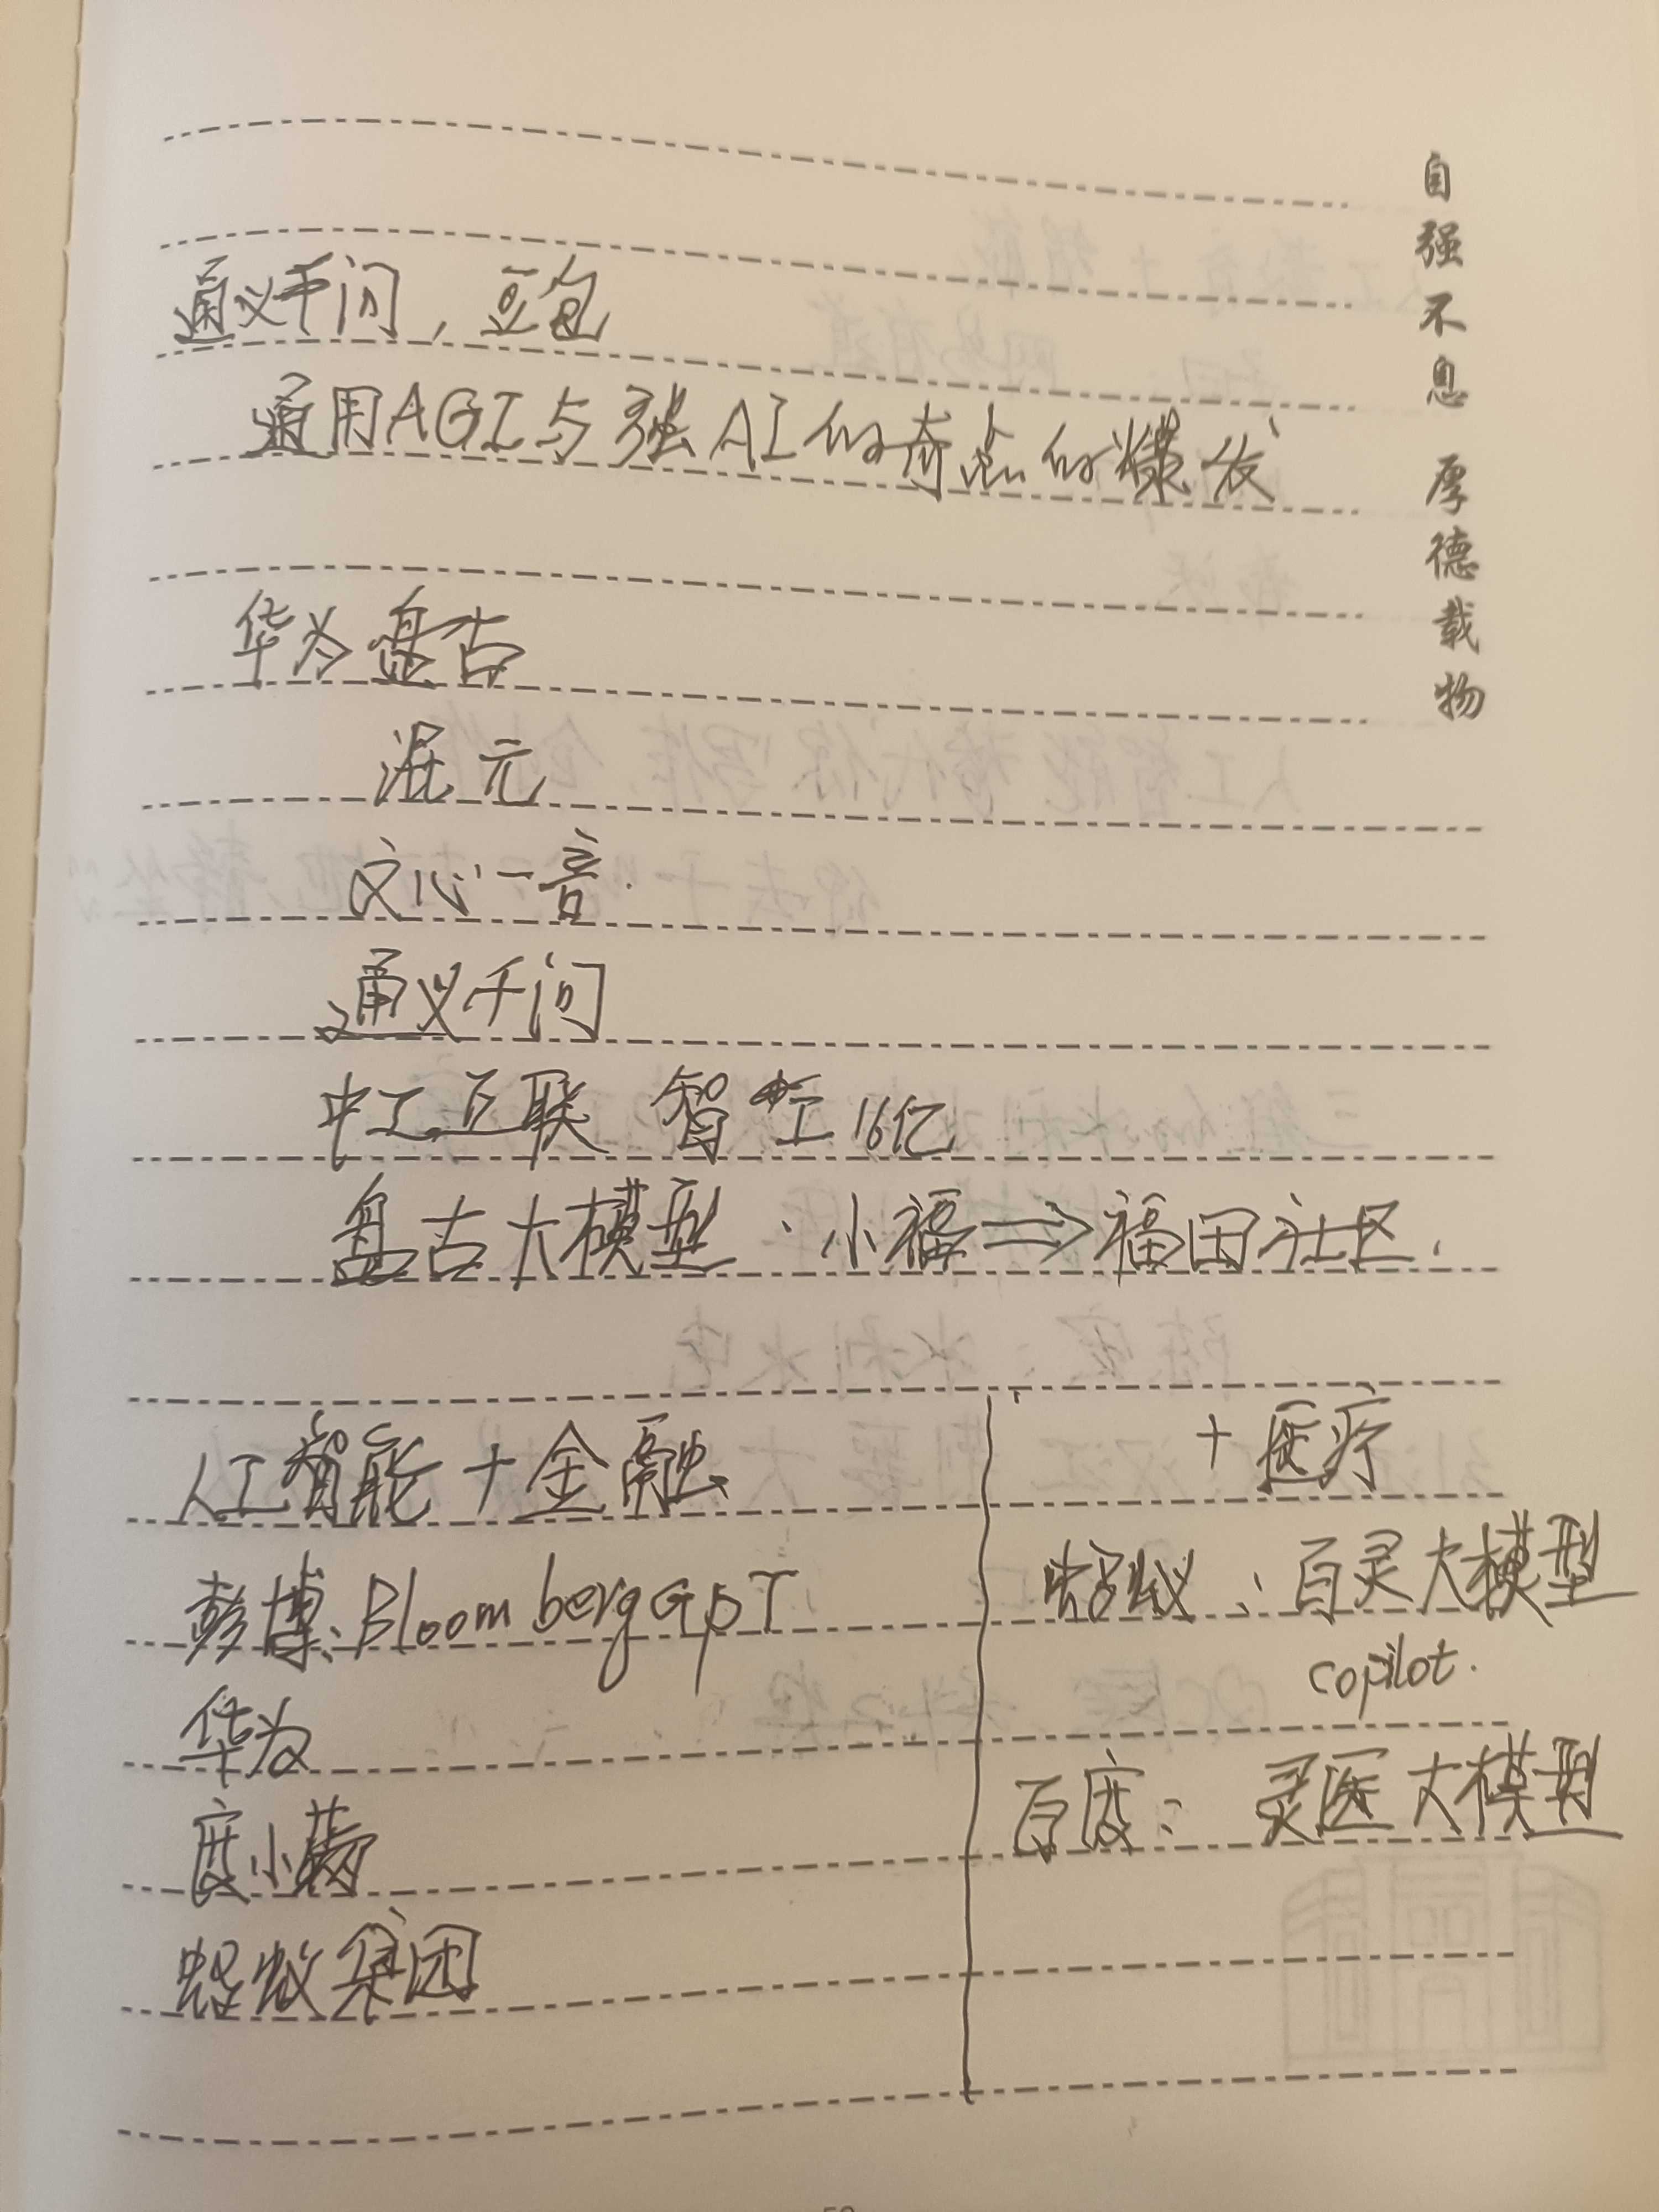 自强不息 厚德载物
通义千问，豆包
通用AGI与强AI的奇点的爆发
华为盘古
混元
文心一言
通义千问
中工互联 智工16亿
盘古大模型 小福⇒福田社区.
人工智能+金融
彭博:BloombergGpT
华为
度小满
蚂蚁集团
+医疗
蚂蚁：百灵大模型
copilot.
百度：灵医大模型